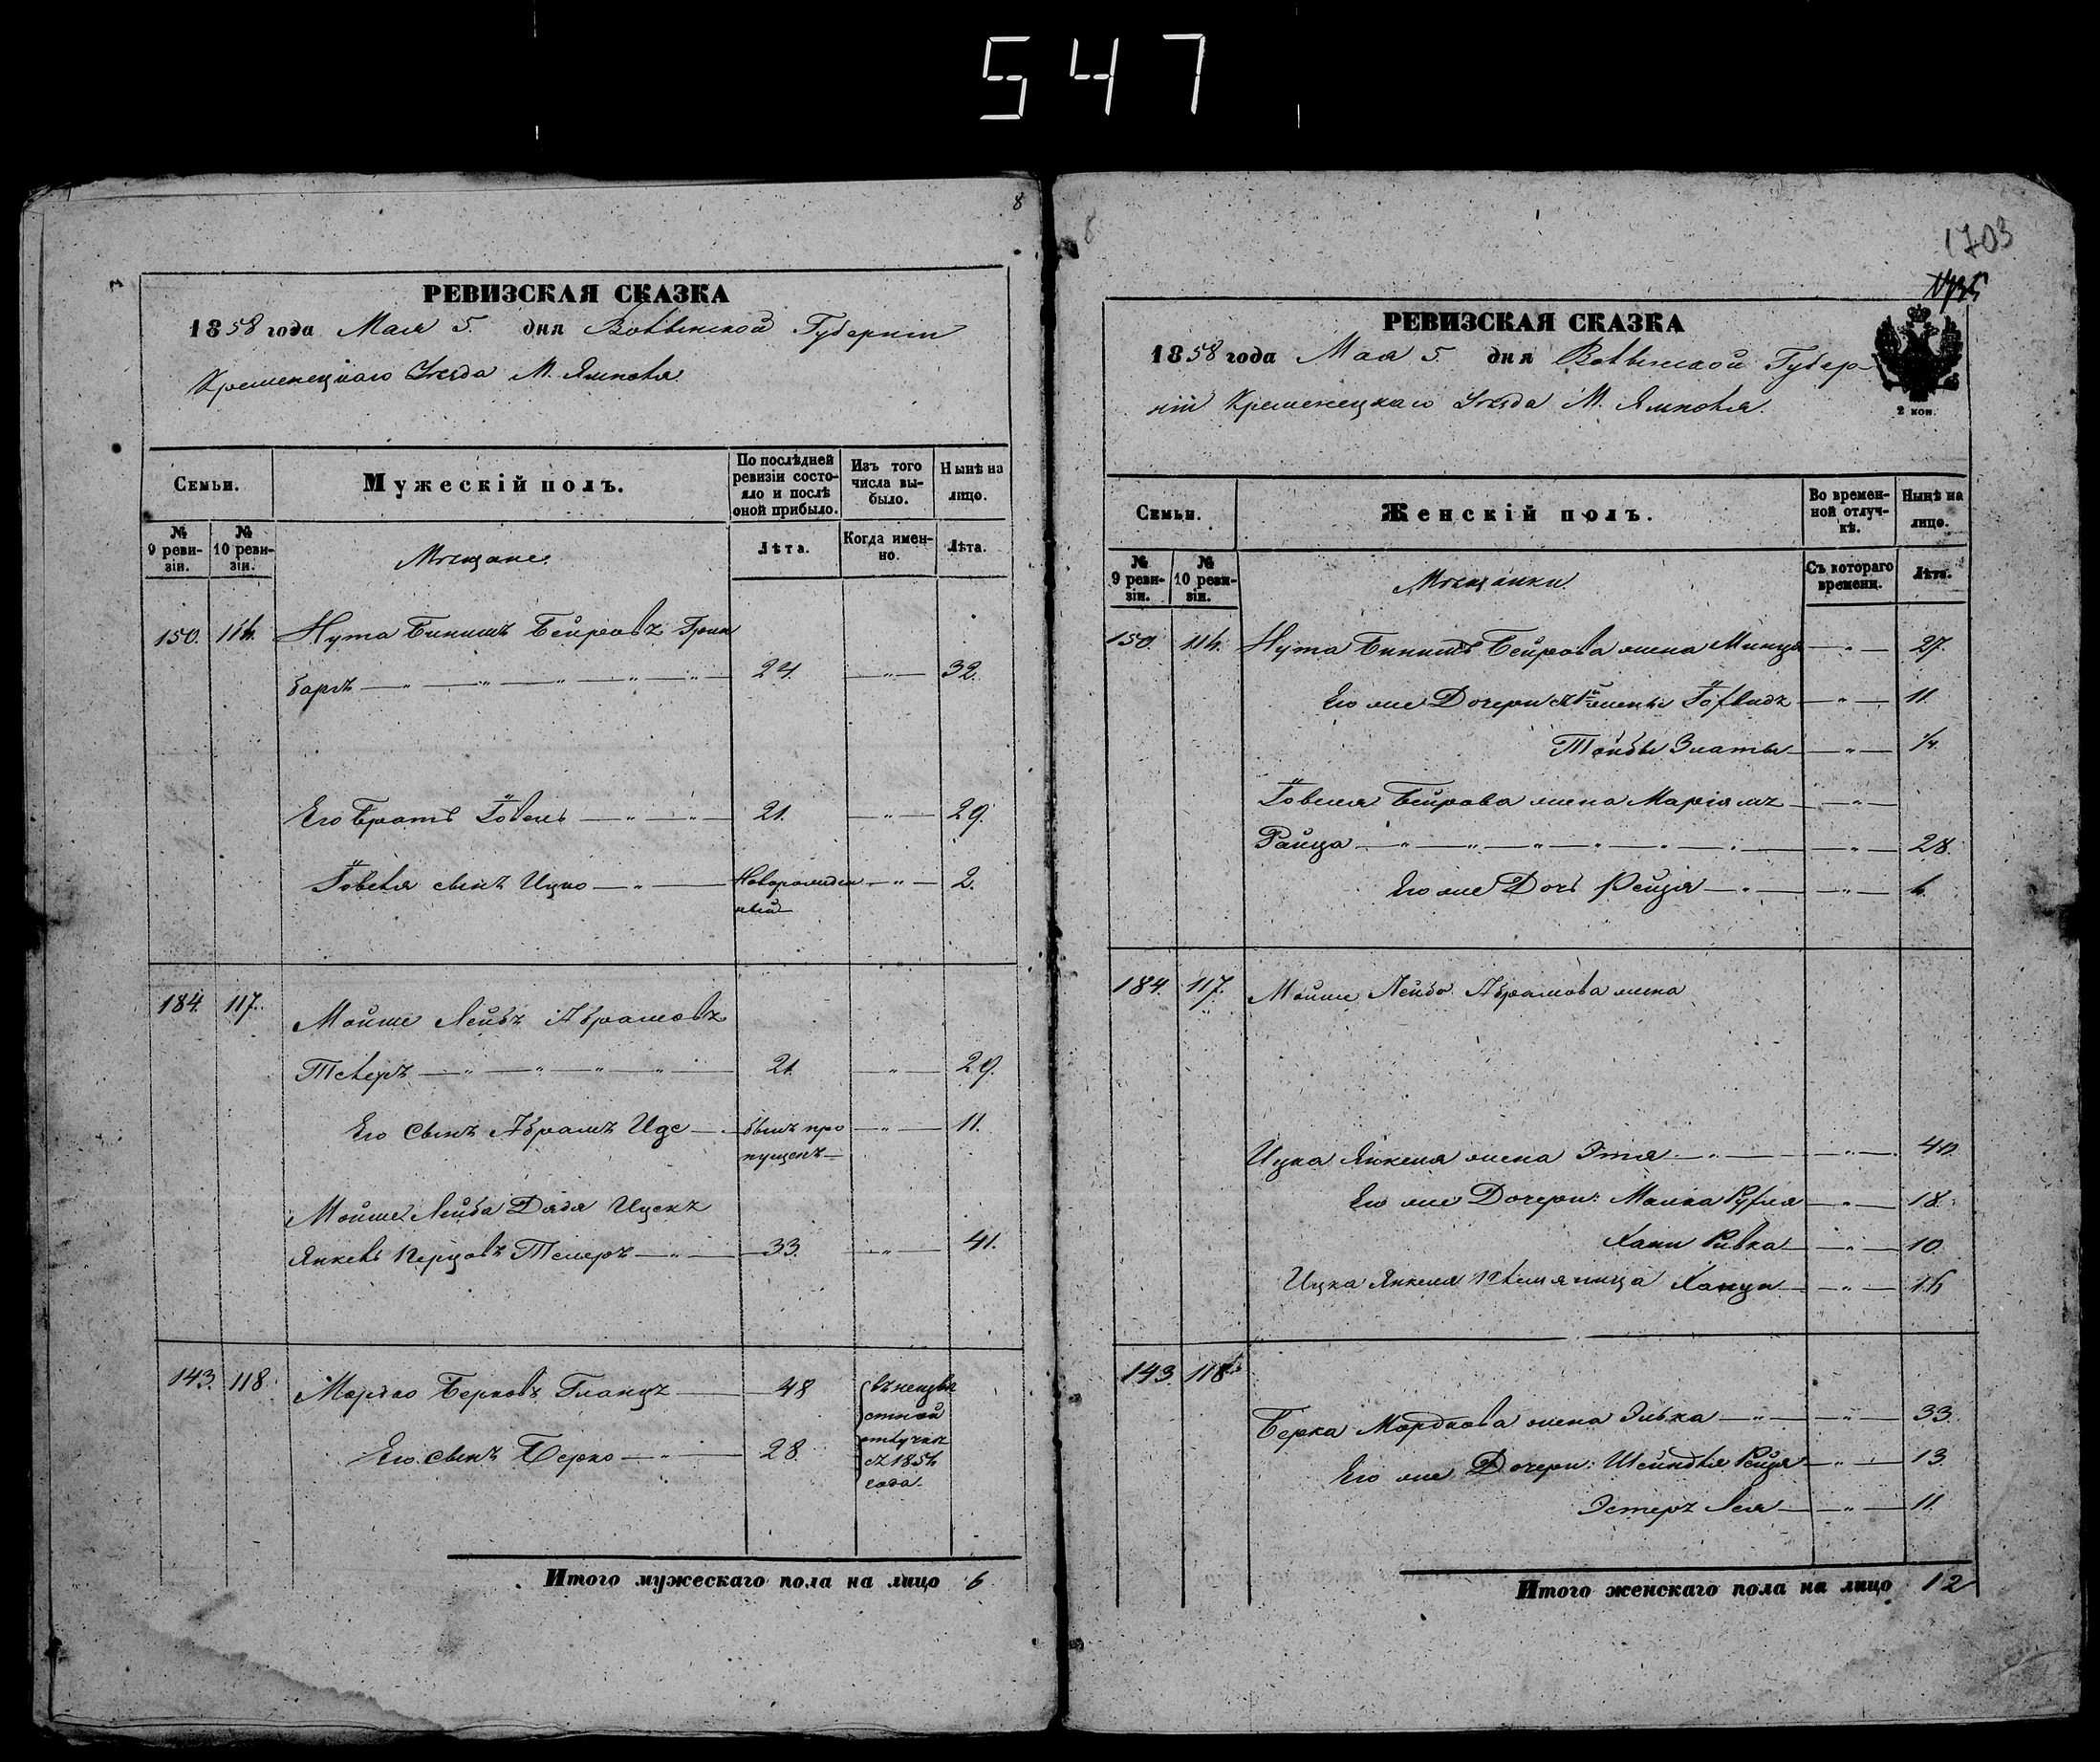 547
8
РЕВИЗСКАЯ СКАЗКА
1858 года Мая 5. дня Волынской Губерніи
Кременецкаго Уѣзда М. Ямполя.
Семьи.
Мужескій полъ.
По послѣдней ревизіи состояло и послѣ оной прибыло.
Изъ того числа выбыло.
Нынѣ на лицо.
№ 9 ревизіи.
№ 10 ревизіи.
Мѣщане.
Лѣта.
Когда именно.
Лѣта.
150. 116. Нута Бинишъ Бейровъ Грин
баргъ — " — 24. — " — 32.
Его Братъ Іовель — " — 21. — " — 29.
Іовеля сынъ Ицко — " — Новорожден — " — 2.
ный
184. 117. Мойше Лейбъ Абрамовъ
Телеръ — " — 21. — " — 29.
Его Сынъ Абрамъ Иде — былъ про — " — 11.
пущенъ
Мойше Лейба Дядя Ицекъ
Янкель Перцовъ Телеръ — " — 33. — " — 41.
143. 118. Мортко Берковъ Гланцъ — 48 въ неизвѣ
стной
Его сынъ Берко — " — 28. отлучкѣ
съ 1856
года.
Итого мужескаго пола на лицо 6
8
1703
РЕВИЗСКАЯ СКАЗКА
1858 года Мая 5. дня Волынской Губер-
ніи Кременецкаго Уѣзда М. Ямполя.
2 коп.
Семьи.
Женскій полъ.
Во временной отлучкѣ.
Нынѣ на лицо.
№ 9 ревизіи.
№ 10 ревизіи.
Мѣщанки
Съ котораго времени.
Лѣта.
150. 116. Нута Бинишъ Бейрова жена Минця — " — 27.
Его же Дочери — " — 11.
Тойбы Златы — " — ¼.
Іовеля Бейрова жена Маріямъ — " —
Райца — " — 28.
Его же Дочь Рейзя — " — 6.
184. 117. Мойше Лейбо Абрамова жена
Ицка Янкеля жена Этя — " — 40.
Его же Дочери: Малка Рухля — " — 18.
Хани Ривка — " — 10
Ицка Янкеля Племяница Ханци — " — 16
143. 118. Берка Мордкова жена Элька — " — 33.
Его же Дочери: Шейндля Рейзя — " — 13
Эстеръ Лея — " — 11.
Итого женскаго пола на лицо 12